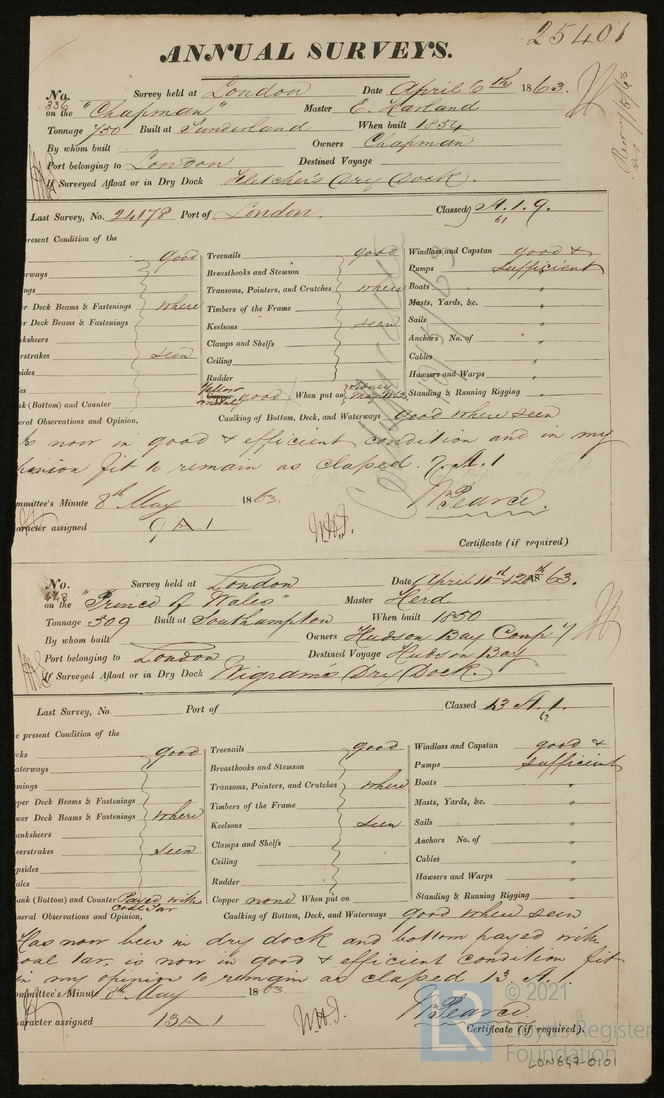 25401
ANNUAL SURVEYS.
No. 336 Survey held at London Date April 6th 1863.
on the "Chapman" Master E. Harland
Tonnage 750 Built at Sunderland When built 1854
By whom built Owners Chapman
Port belonging to London Destined Voyage
If Surveyed Afloat or in Dry Dock Fletcher's Dry Dock.
Last Survey, No. 24178 Port of London. Classed A.1.9.
61
resent Condition of the
good Treenails good Windlass and Capstan good &
rways Breasthooks and Stemson Pumps sufficient
ngs Transoms, Pointers, and Crutches where Boats "
er Deck Beams & Fastenings where Timbers of the Frame Masts, Yards, &c. "
er Deck Beams & Fastenings Keelsons seen Sails "
ksheers Clamps and Shelfs Anchors No. of "
erstrakes seen Ceiling Cables "
sides Rudder Hawsers and Warps "
es Yellow metal good When put on May 1862 Standing & Running Rigging "
nk (Bottom) and Counter Caulking of Bottom, Deck, and Waterways good where seen
eral Observations and Opinion,
Is now in good & efficient condition and in my
pinion fit to remain as classed. 9. A.1
mmittee's Minute 8th May 1863. Wm Pearce.
aracter assigned 9 A 1
Certificate (if required)
No. Survey held at London Date April 11th 12th 1863.
on the "Prince of Wales" Master Herd
Tonnage 509 Built at Southampton When built 1850
By whom built Owners Hudson Bay Compy
Port belonging to London Destined Voyage Hudson Bay
If Surveyed Afloat or in Dry Dock Wigram's Dry Dock.
Last Survey, No. Port of Classed 13 A.1.
62
e present Condition of the
cks good Treenails good Windlass and Capstan good &
aterways Breasthooks and Stemson Pumps sufficient
mings Transoms, Pointers, and Crutches where Boats "
per Deck Beams & Fastenings Timbers of the Frame Masts, Yards, &c. "
wer Deck Beams & Fastenings where Keelsons seen Sails "
anksheers Clamps and Shelfs Anchors No. of "
eerstrakes seen Ceiling Cables "
opsides Rudder Hawsers and Warps "
ales
unk (Bottom) and Counter Payed with Coal Tar Copper none When put on Standing & Running Rigging "
neral Observations and Opinion, Caulking of Bottom, Deck, and Waterways good where seen
Has now been in dry dock and bottom payed with
oal tar. is now in good & efficient condition fit
in my opinion to remain as classed 13 A.1.
ommittee's Minute 8th May 1863.
haracter assigned 13 A 1 Wm Pearce
Certificate (if required).
© 2021
LR Lloyd's Register
Foundation
LON647-0101